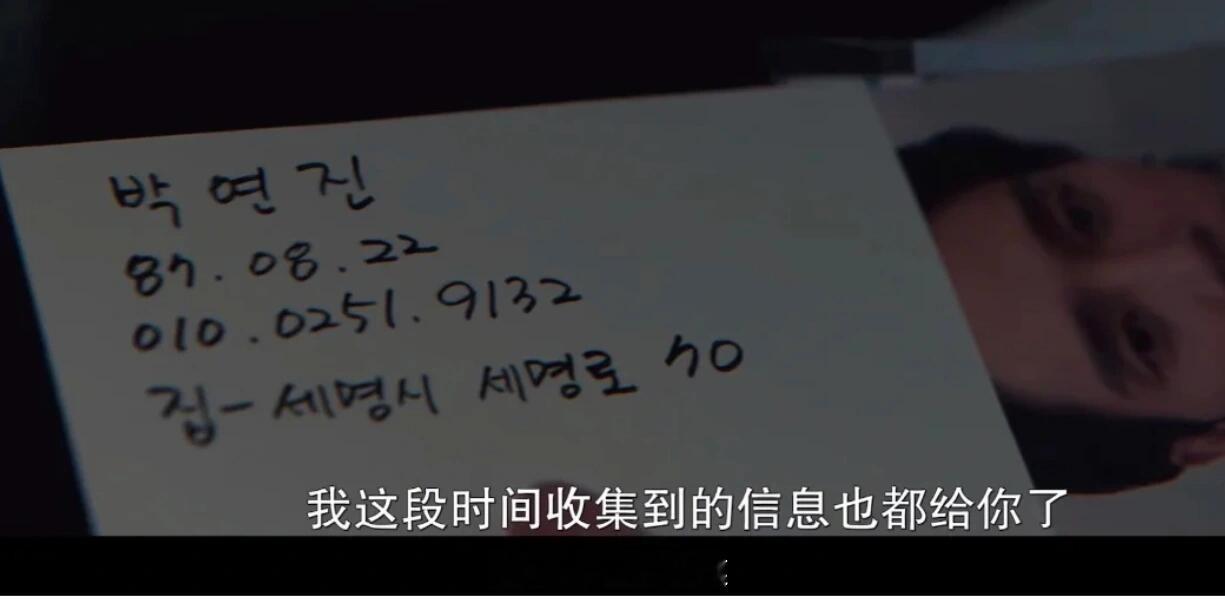 박연진
87.08.22
010.0251.9132
집-세명시 세명로 70
我这段时间收集到的信息也都给你了